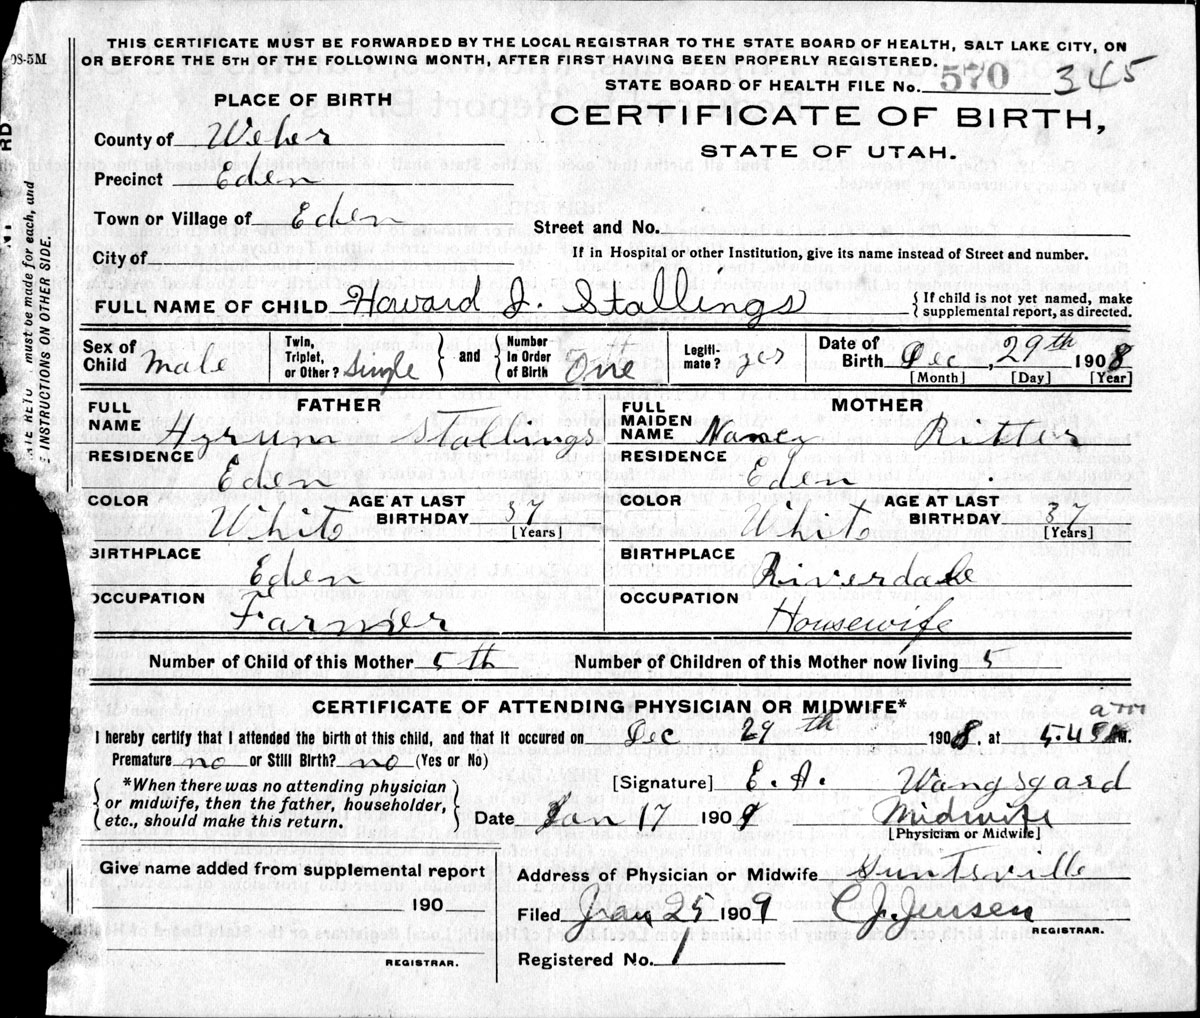 THIS CERTIFICATE MUST BE FORWARDED BY THE LOCAL REGISTRAR TO THE STATE BOARD OF HEALTH, SALT LAKE CITY, ON
OR BEFORE THE 5TH OF THE FOLLOWING MONTH, AFTER FIRST HAVING BEEN PROPERLY REGISTERED.
08-5M
STATE BOARD OF HEALTH FILE No. 570 345
PLACE OF BIRTH
CERTIFICATE OF BIRTH,
STATE OF UTAH.
County of Weber
Precinct Eden
Town or Village of Eden
Street and No.
City of
If in Hospital or other Institution, give its name instead of Street and number.
FULL NAME OF CHILD Howard J. Stallings { If child is not yet named, make supplemental report, as directed.
must be made for each, and
INSTRUCTIONS ON OTHER SIDE.
Sex of Child Male Twin, Triplet, or Other? Single } and { Number in Order of Birth One Legitimate? yes Date of Birth Dec, 29th 1908
[Month] [Day] [Year]
FATHER
FULL NAME Hyrum Stallings
RESIDENCE Eden
COLOR White AGE AT LAST BIRTHDAY 37 [Years]
BIRTHPLACE Eden
OCCUPATION Farmer
MOTHER
FULL MAIDEN NAME Nancy Ritter
RESIDENCE Eden
COLOR White AGE AT LAST BIRTHDAY 37 [Years]
BIRTHPLACE Riverdale
OCCUPATION Housewife
Number of Child of this Mother 5th Number of Children of this Mother now living 5
CERTIFICATE OF ATTENDING PHYSICIAN OR MIDWIFE*
I hereby certify that I attended the birth of this child, and that it occured on Dec 29th 1908, at 5.45 a m M.
Premature no or Still Birth? no (Yes or No)
{ *When there was no attending physician
or midwife, then the father, householder,
etc., should make this return. }
[Signature] E. A. Wangsgard
Date Jan 17 1909 Midwife
[Physician or Midwife]
Give name added from supplemental report
190
REGISTRAR.
Address of Physician or Midwife Huntsville
Filed Jan 25 1909 C. J. Jensen
REGISTRAR.
Registered No. 1